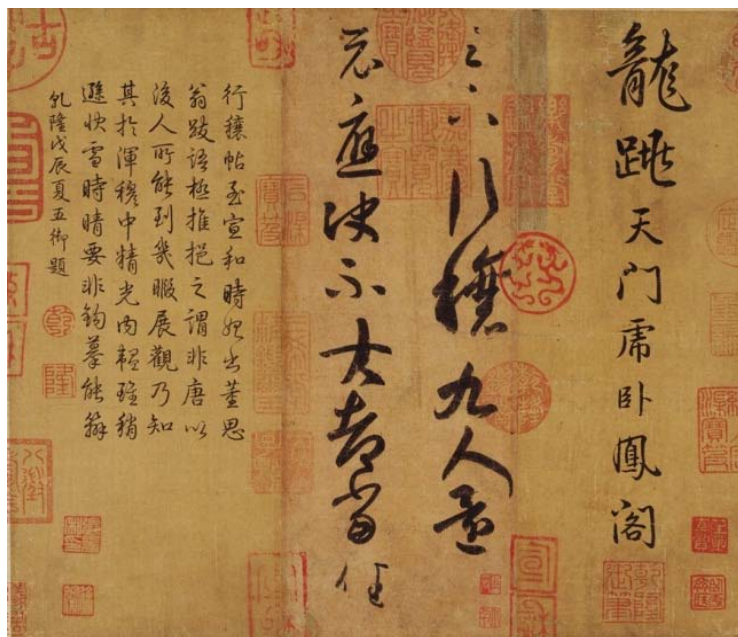 龍跳天門虎卧鳳閣
足下行穰九人還
示應決不大都當任
行穰帖至宣和時始出董思
翁跋語極推挹之謂非唐以
後人所能到幾暇展觀乃知
其於渾穆中精光内韞雖稍
遜快雪時晴要非鈎摹能辦
乾隆戊辰夏五御題